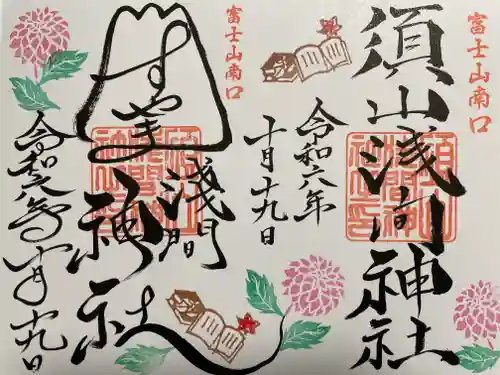 富士山南口
須山浅間神社
令和六年
十月十九日
須山
浅間神
社之印
富士山南口
すやま
浅間
神社
令和六年十月十九日